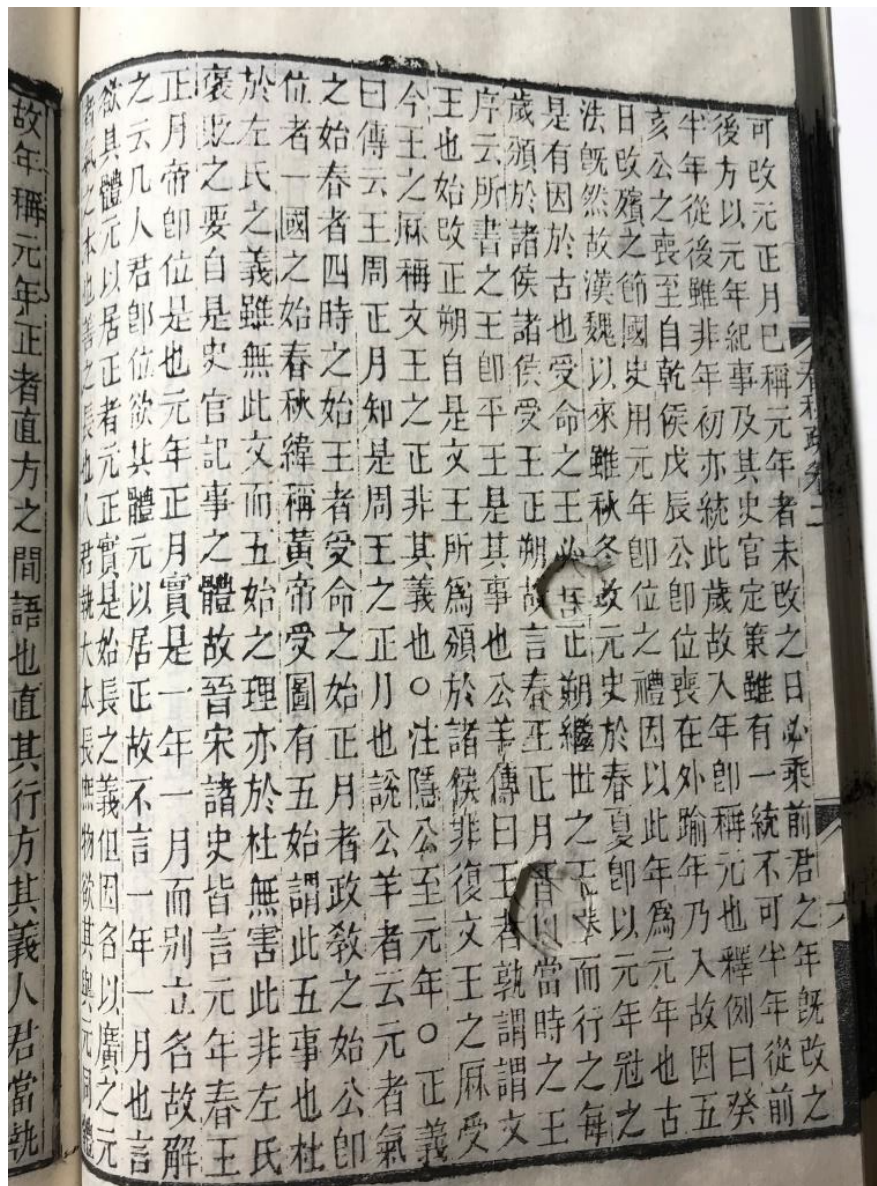 春秋疏卷二
六
可改元正月巳稱元年者未改之日必乘前君之年旣改之
後方以元年紀事及其史官定策雖有一統不可半年從前
半年從後雖非年初亦統此歲故入年卽稱元也釋例曰癸
亥公之喪至自乾侯戊辰公卽位喪在外踰年乃入故因五
日改殯之節國史用元年卽位之禮因以此年爲元年也古
法旣然故漢魏以來雖秋冬改元史於春夏卽以元年冠之
是有因於古也受命之王必正朔繼世之王而行之每
歲頒於諸侯諸侯受王正朔故言春王正月以當時之王
序云所書之王卽平王是其事也公羊傳曰王者孰謂謂文
王也始改正朔自是文王所爲頒於諸侯非復文王之厤受
今王之厤稱文王之正非其義也○注隱公至元年○正義
曰傳云王周正月知是周王之正月也說公羊者云元者氣
之始春者四時之始王者受命之始正月者政敎之始公卽
位者一國之始春秋緯稱黃帝受圖有五始謂此五事也杜
於左氏之義雖無此文而五始之理亦於杜無害此非左氏
褒貶之要自是史官記事之體故晉宋諸史皆言元年春王
正月帝卽位是也元年正月實是一年一月而別立名故解
之云凡人君卽位欲其體元以居正故不言一年一月也言
欲其體元以居正者元正實是始長之義但因名以廣之元
者氣之本也善之長也人君執大本長庶物欲其與元同體
故年稱元年正者直方之間語也直其行方其義人君當執